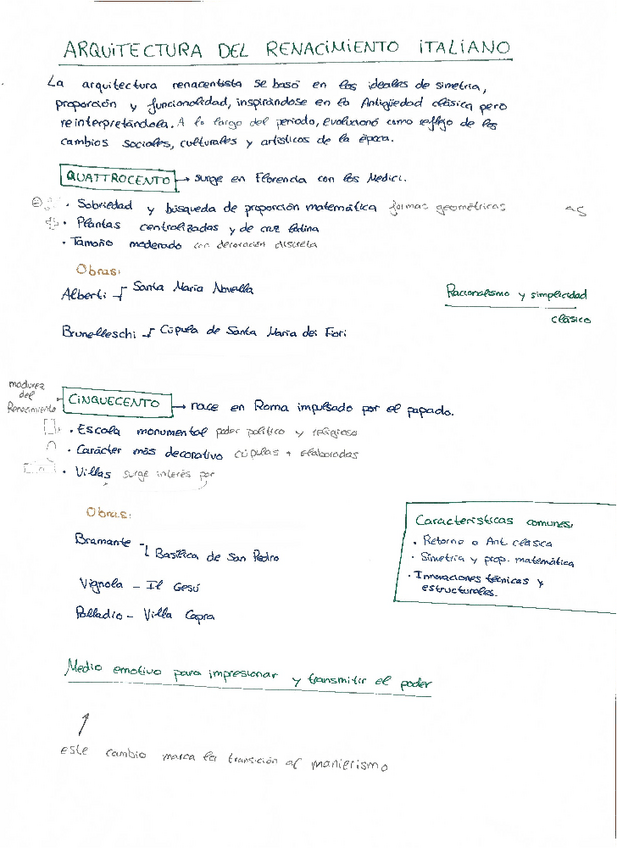 ARQUITECTURA DEL RENACIMIENTO ITALIANO
La arquitectura renacentista se basó en los ideales de simetría,
proporción y funcionalidad, inspirándose en la Antigüedad clásica pero
reinterpretándola. A lo largo del periodo, evolucionó como reflejo de los
cambios sociales, culturales y artísticos de la época.
QUATTROCENTO → surge en Florencia con los Medici.
· Sobriedad y búsqueda de proporción matemática formas geométricas
· Plantas centralizadas y de cruz latina
· Tamaño moderado con decoración discreta
Obras:
Alberti - Santa María Novella
Racionalismo y simplicidad
clásico
Brunelleschi - Cúpula de Santa María dei Fiori
madurez
del
Renacimiento
CINQUECENTO → nace en Roma impulsado por el papado.
· Escala monumental poder político y religioso
· Carácter más decorativo cúpulas + elaboradas
· Villas surge interés por
Obras:
Bramante - Basílica de San Pedro
Vignola - Il Gesú
Palladio - Villa Capra
Características comunes:
· Retorno a Ant. clásica
· Simetría y prop. matemática
· Innovaciones técnicas y
estructurales.
Medio emotivo para impresionar y transmitir el poder
este cambio marca la transición al manierismo